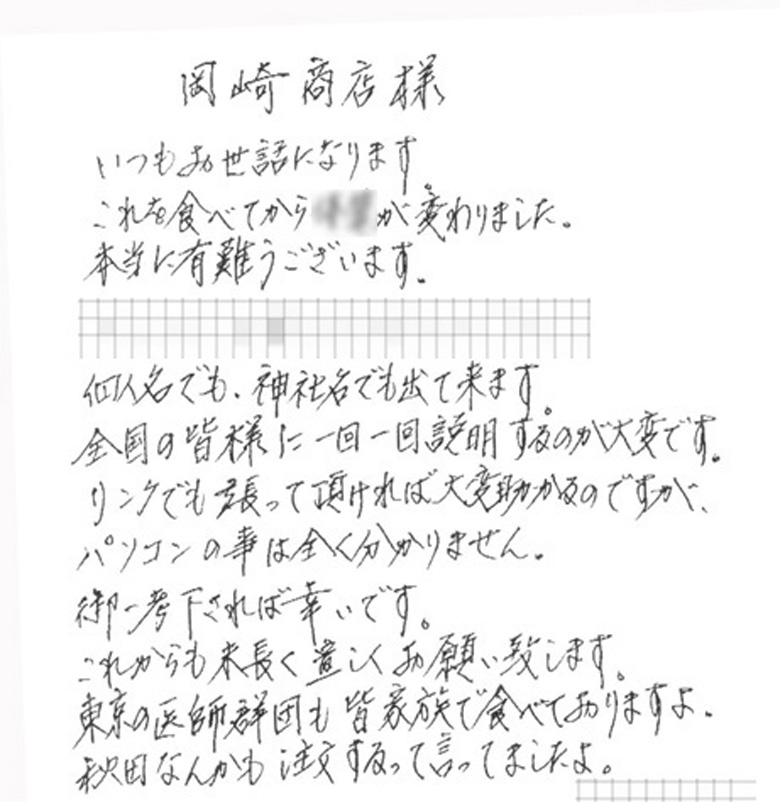 岡崎商店様
いつもお世話になります。
これを食べてからが変わりました。
本当に有難うございます。
個人名でも、神社名でも出て来ます。
全国の皆様に一回一回説明するのが大変です。
リンクでも張って頂ければ大変助かるのですが、
パソコンの事は全く分かりません。
御一考下されば幸いです。
これからも末長く宜しくお願い致します。
東京の医師群団も皆家族で食べておりますよ。
秋田なんかも注文するって言ってましたよ。